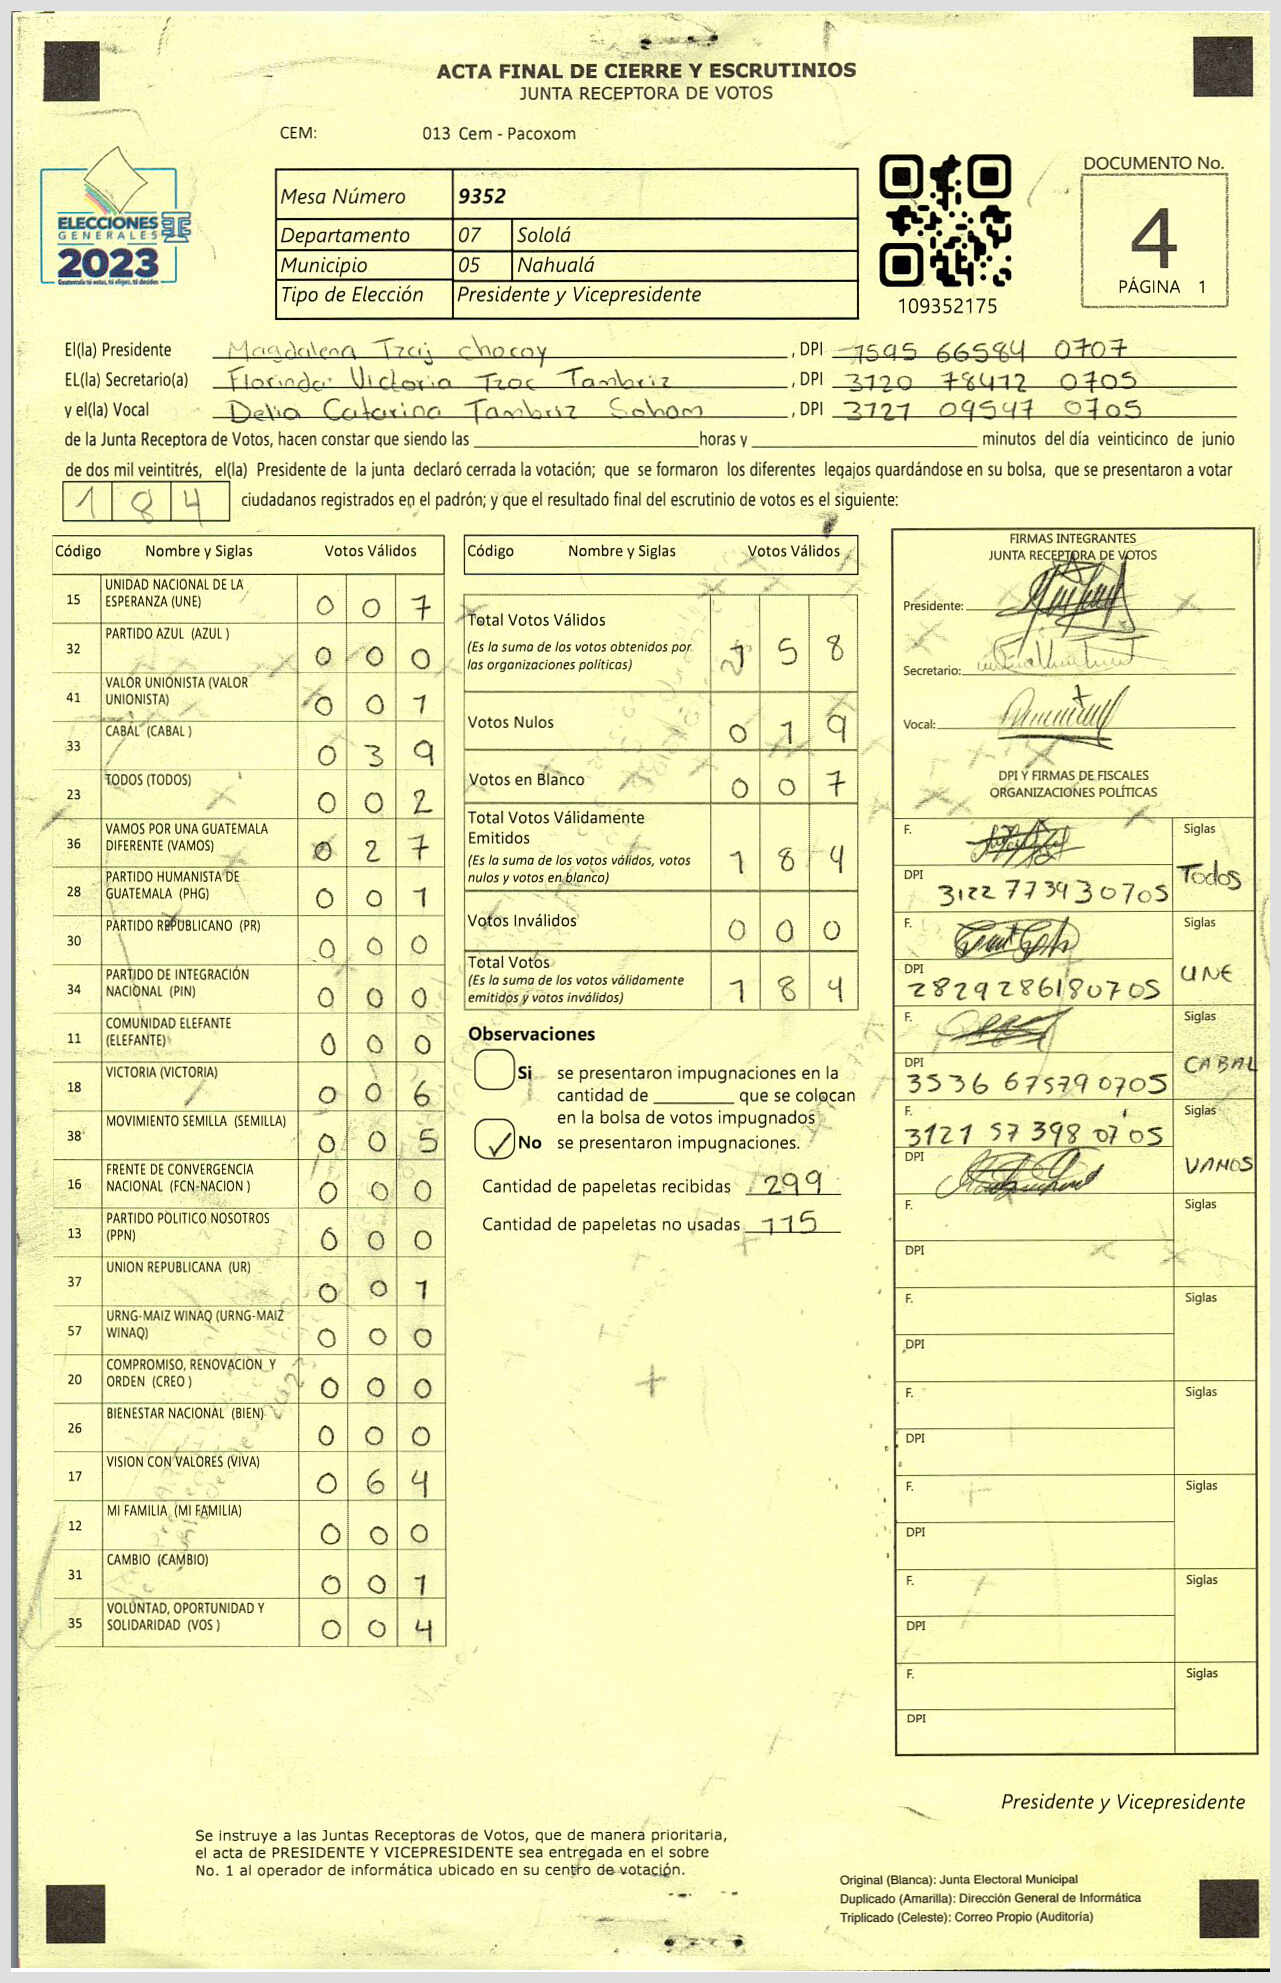 ACTA FINAL DE CIERRE Y ESCRUTINIOS
JUNTA RECEPTORA DE VOTOS
CEM: 013 Cem - Pacoxom
ELECCIONES
GENERALES
2023
Guatemala tú votas, tú eliges, tú decides
Mesa Número 9352
Departamento 07 Sololá
Municipio 05 Nahualá
Tipo de Elección Presidente y Vicepresidente
109352175
DOCUMENTO No.
4
PÁGINA 1
El(la) Presidente Magdalena Tzaj chocoy , DPI 1595 66584 0707
EL(la) Secretario(a) Florinda Victoria Tzoc Tambriz , DPI 3120 78412 0705
y el(la) Vocal Delia Catarina Tambriz Sohom , DPI 3721 09547 0705
de la Junta Receptora de Votos, hacen constar que siendo las horas y minutos del día veinticinco de junio
de dos mil veintitrés, el(la) Presidente de la junta declaró cerrada la votación; que se formaron los diferentes legajos guardándose en su bolsa, que se presentaron a votar
184 ciudadanos registrados en el padrón; y que el resultado final del escrutinio de votos es el siguiente:
Código Nombre y Siglas Votos Válidos
15 UNIDAD NACIONAL DE LA
ESPERANZA (UNE) 0 0 7
32 PARTIDO AZUL (AZUL ) 0 0 0
41 VALOR UNIONISTA (VALOR
UNIONISTA) 0 0 1
33 CABAL (CABAL ) 0 3 9
23 TODOS (TODOS) 0 0 2
36 VAMOS POR UNA GUATEMALA
DIFERENTE (VAMOS) 0 2 7
28 PARTIDO HUMANISTA DE
GUATEMALA (PHG) 0 0 1
30 PARTIDO REPUBLICANO (PR) 0 0 0
34 PARTIDO DE INTEGRACIÓN
NACIONAL (PIN) 0 0 0
11 COMUNIDAD ELEFANTE
(ELEFANTE) 0 0 0
18 VICTORIA (VICTORIA) 0 0 6
38 MOVIMIENTO SEMILLA (SEMILLA) 0 0 5
16 FRENTE DE CONVERGENCIA
NACIONAL (FCN-NACION ) 0 0 0
13 PARTIDO POLITICO NOSOTROS
(PPN) 0 0 0
37 UNION REPUBLICANA (UR) 0 0 1
57 URNG-MAIZ WINAQ (URNG-MAIZ
WINAQ) 0 0 0
20 COMPROMISO, RENOVACION Y
ORDEN (CREO ) 0 0 0
26 BIENESTAR NACIONAL (BIEN) 0 0 0
17 VISION CON VALORES (VIVA) 0 6 4
12 MI FAMILIA (MI FAMILIA) 0 0 0
31 CAMBIO (CAMBIO) 0 0 1
35 VOLUNTAD, OPORTUNIDAD Y
SOLIDARIDAD (VOS ) 0 0 4
Código Nombre y Siglas Votos Válidos
Total Votos Válidos
(Es la suma de los votos obtenidos por
las organizaciones políticas) 1 5 8
Votos Nulos 0 1 9
Votos en Blanco 0 0 7
Total Votos Válidamente
Emitidos
(Es la suma de los votos válidos, votos
nulos y votos en blanco) 1 8 4
Votos Inválidos 0 0 0
Total Votos
(Es la suma de los votos válidamente
emitidos y votos inválidos) 1 8 4
Observaciones
Si se presentaron impugnaciones en la
cantidad de que se colocan
en la bolsa de votos impugnados
No se presentaron impugnaciones.
Cantidad de papeletas recibidas 299
Cantidad de papeletas no usadas 115
FIRMAS INTEGRANTES
JUNTA RECEPTORA DE VOTOS
Presidente:
Secretario:
Vocal:
DPI Y FIRMAS DE FISCALES
ORGANIZACIONES POLÍTICAS
F. Siglas
DPI 3122 77393 0705 Todos
F. Siglas
DPI 2829286180705 UNE
F. Siglas
DPI 3536 67579 0705 CABAL
F. 3121 57 398 0705 Siglas
DPI VAMOS
F. Siglas
DPI
F. Siglas
DPI
F. Siglas
DPI
F. Siglas
DPI
F. Siglas
DPI
F. Siglas
DPI
Presidente y Vicepresidente
Se instruye a las Juntas Receptoras de Votos, que de manera prioritaria,
el acta de PRESIDENTE Y VICEPRESIDENTE sea entregada en el sobre
No. 1 al operador de informática ubicado en su centro de votación.
Original (Blanca): Junta Electoral Municipal
Duplicado (Amarilla): Dirección General de Informática
Triplicado (Celeste): Correo Propio (Auditoría)